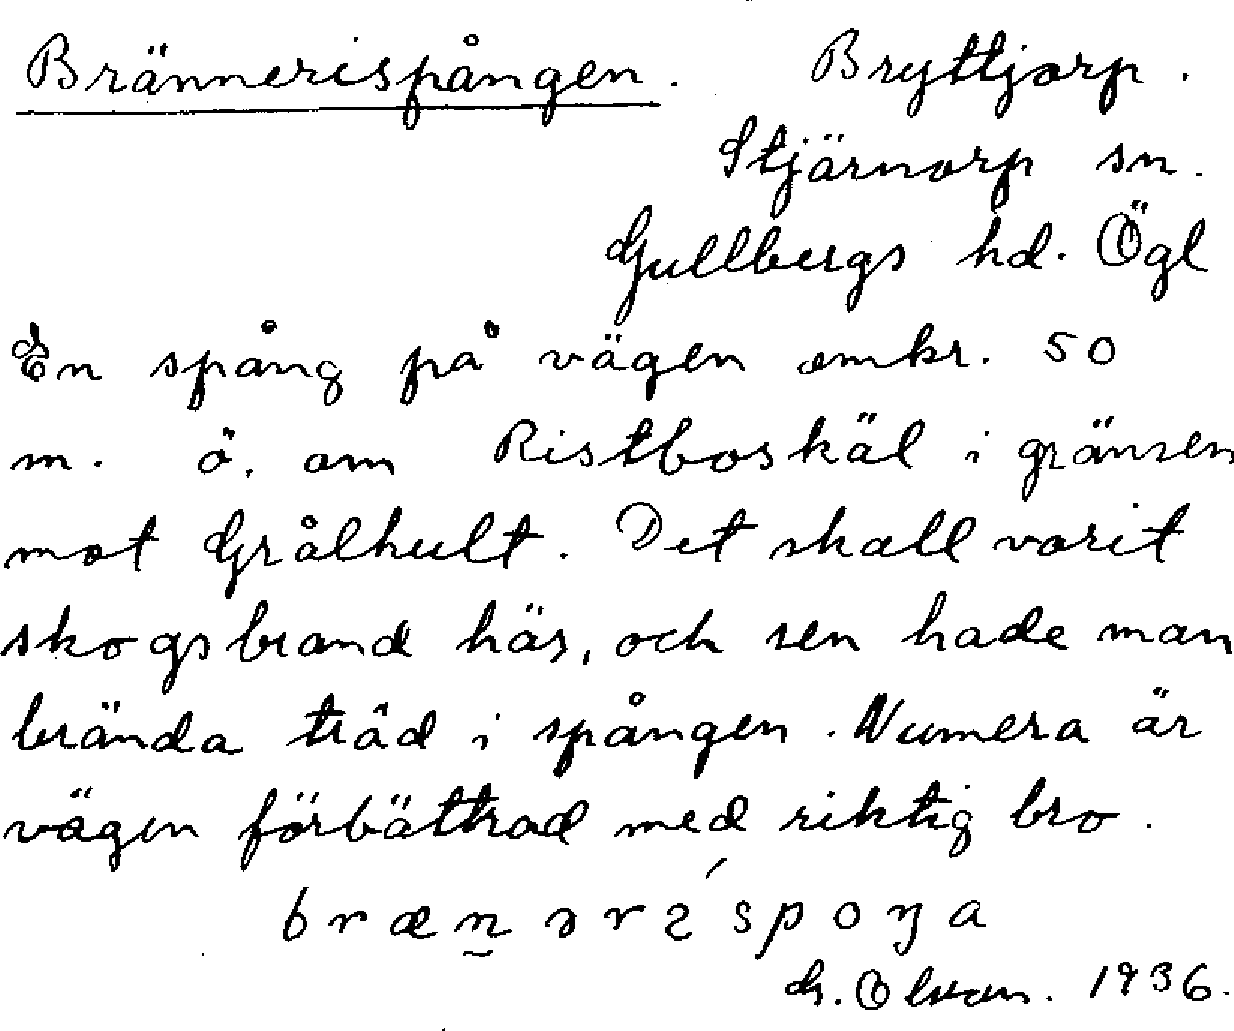 Brännerispången. Bryttjorp.
Stjärnorp sn.
Gullbergs hd. Ögl
En spång på vägen omkr. 50
m. ö. om Ristboskäl i gränsen
mot Grålhult. Det skall varit
skogsbrand här, och sen hade man
brända träd i spången. Numera är
vägen förbättrad med riktig bro.
G. Olsson. 1936.